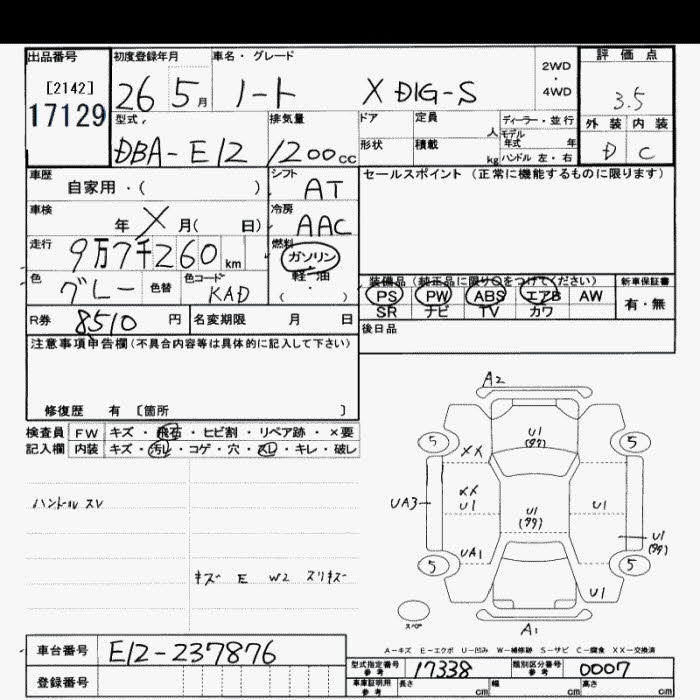 出品番号 初度登録年月 車名・グレード 評価点
[2142] 26 5月 ノート X DIG-S 2WD・4WD 3.5
17129 型式 排気量 ドア 定員 人 ディーラー・並行 外装 内装
DBA-E12 1200cc 形状 積載 kg モデル年式 年 ハンドル 左・右 D C
車歴 自家用・( ) シフト AT セールスポイント (正常に機能するものに限ります)
車検 年 X 月( 日) 冷房 AAC
走行 9万7千260km 燃料 ガソリン・軽・油・( )
色 グレー 色替 色コード KAD 装備品(純正品に限り○をつけてください) 新車保証書
PS PW ABS エアB AW 有・無
SR ナビ TV カワ
R券 8510円 名変期限 月 日 後日品
注意事項申告欄(不具合内容等は具体的に記入して下さい)
修復歴 有 〔箇所 〕
検査員 FW キズ・飛石・ヒビ割・リペア跡・×要
記入欄 内装 キズ・汚レ・コゲ・穴・スレ・キレ・破レ
ハンドルスレ
キズ E W2 スリキズ
A2
U1
5 5
XX
XX
U1
UA3 U1 U1
U1
UA1
5 5
U1
スペア
A1
A-キズ E-エクボ U-凹み W-補修跡 S-サビ C-腐食 XX-交換済
車台番号 E12-237876
型式指定番号 参考 17338 類別区分番号 参考 0007
登録番号 車庫証明用 参考 長さ cm 幅 cm 高さ cm